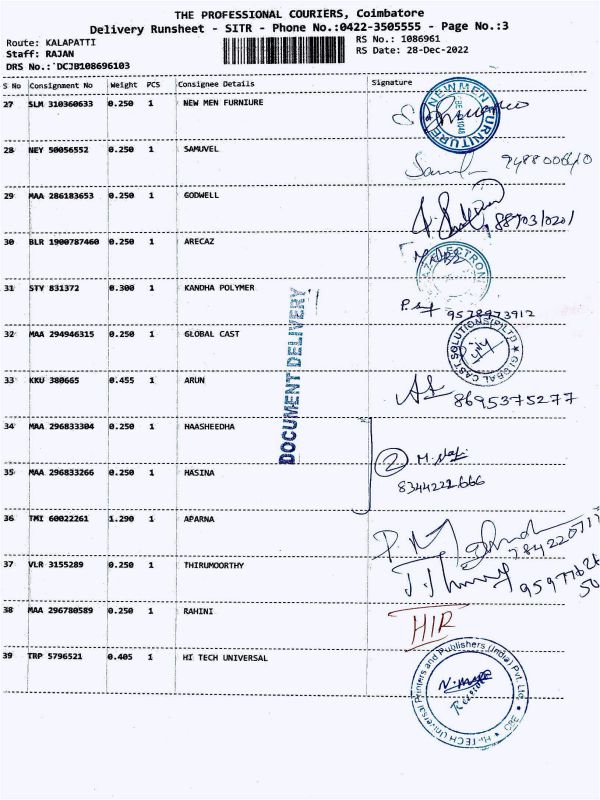 THE PROFESSIONAL COURIERS, Coimbatore
Delivery Runsheet - SITR - Phone No.:0422-3505555 - Page No.:3
Route: KALAPATTI RS No.: 1086961
Staff: RAJAN RS Date: 28-Dec-2022
DRS No.: DCJB108696103
S No Consignment No Weight PCS Consignee Details Signature
27 SLM 310360633 0.250 1 NEW MEN FURNIURE
NEWMEN FURNITURE
28 NEY 50056552 0.250 1 SAMUVEL
29 MAA 286183653 0.250 1 GODWELL
30 BLR 1900787460 0.250 1 ARECAZ
31 STY 831372 0.300 1 KANDHA POLYMER
9578973912
DOCUMENT DELIVERY
32 MAA 294946315 0.250 1 GLOBAL CAST
GLOBAL CAST SOLUTIONS (P) LTD
33 KKU 380665 0.455 1 ARUN
8695375277
34 MAA 296833304 0.250 1 HAASHEEDHA
2
35 MAA 296833266 0.250 1 HASINA
8344222666
36 TMI 60022261 1.290 1 APARNA
37 VLR 3155289 0.250 1 THIRUMOORTHY
38 MAA 296780589 0.250 1 RAHINI
HIR
39 TRP 5796521 0.405 1 HI TECH UNIVERSAL
Hi-TECH Universal Printers and Publishers (India) Pvt. Ltd. CBE